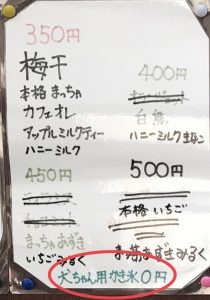 350円
梅干
本格まっちゃ
カフェオレ
アップルミルクティー
ハニーミルク
400円
白熊
ハニーミルクきなこ
450円
まっちゃあずき
いちごみるく
500円
本格いちご
犬ちゃん用かき氷0円